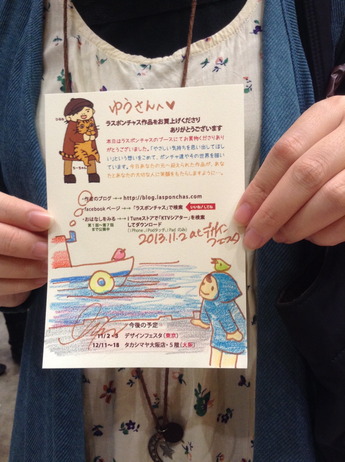 ゆうさんへ♥
ラスポンチャス作品をお買上げくださり
ありがとうございます
本日はラスポンチャスのブースにてお買物くださりあり
がとうございました。「やさしい気持ちを思い出してほし
い」という想いをこめて、ポンチャ達や今の世界を描い
ています。
作者のブログ → http://blog.lasponchas.com
facebookページ → 「ラスポンチャス」で検索
おはなしをみる → iTunesストアで「KTVシアター」を検索
してダウンロード
(iPhone、iPodタッチ、iPad のみ)
2013.11.2 at デザイン
フェスタ
今後の予定
11/2・3 デザインフェスタ(東京)
12/11〜18 タカシマヤ大阪店・5階(大阪)